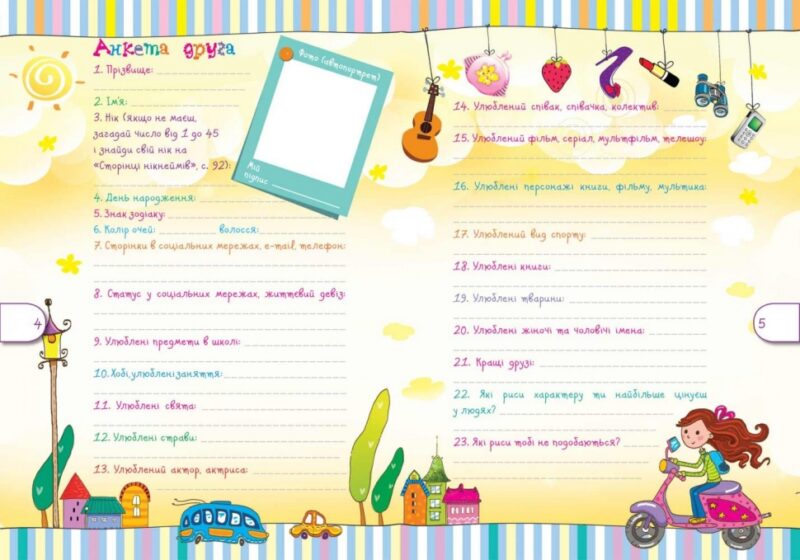 Анкета друга
1. Прізвище:
2. Ім'я:
3. Нік (Якщо не маєш,
загадай число від 1 до 45
і знайди свій нік на
«Сторінці нікнеймів», с. 92):
Фото (автопортрет)
Мій
підпис
4. День народження:
5. Знак зодіаку:
6. Колір очей: волосся:
7. Сторінки в соціальних мережах, e-mail, телефон:
8. Статус у соціальних мережах, життєвий девіз:
4
9. Улюблені предмети в школі:
10. Хобі, улюблені заняття:
11. Улюблені свята:
12. Улюблені страви:
13. Улюблений актор, актриса:
14. Улюблений співак, співачка, колектив:
15. Улюблений фільм, серіал, мультфільм, телешоу:
16. Улюблені персонажі книги, фільму, мультика:
17. Улюблений вид спорту:
18. Улюблені книги:
19. Улюблені тварини:
5
20. Улюблені жіночі та чоловічі імена:
21. Кращі друзі:
22. Які риси характеру ти найбільше цінуєш
у людях?
23. Які риси тобі не подобаються?